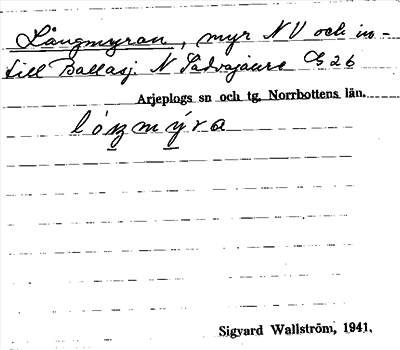 Långmyran, myr NV och in-
till Ballasj. N Sädvajaure G 26
Arjeplogs sn och tg, Norrbottens län.
lóŋmýra
Sigvard Wallström, 1941.